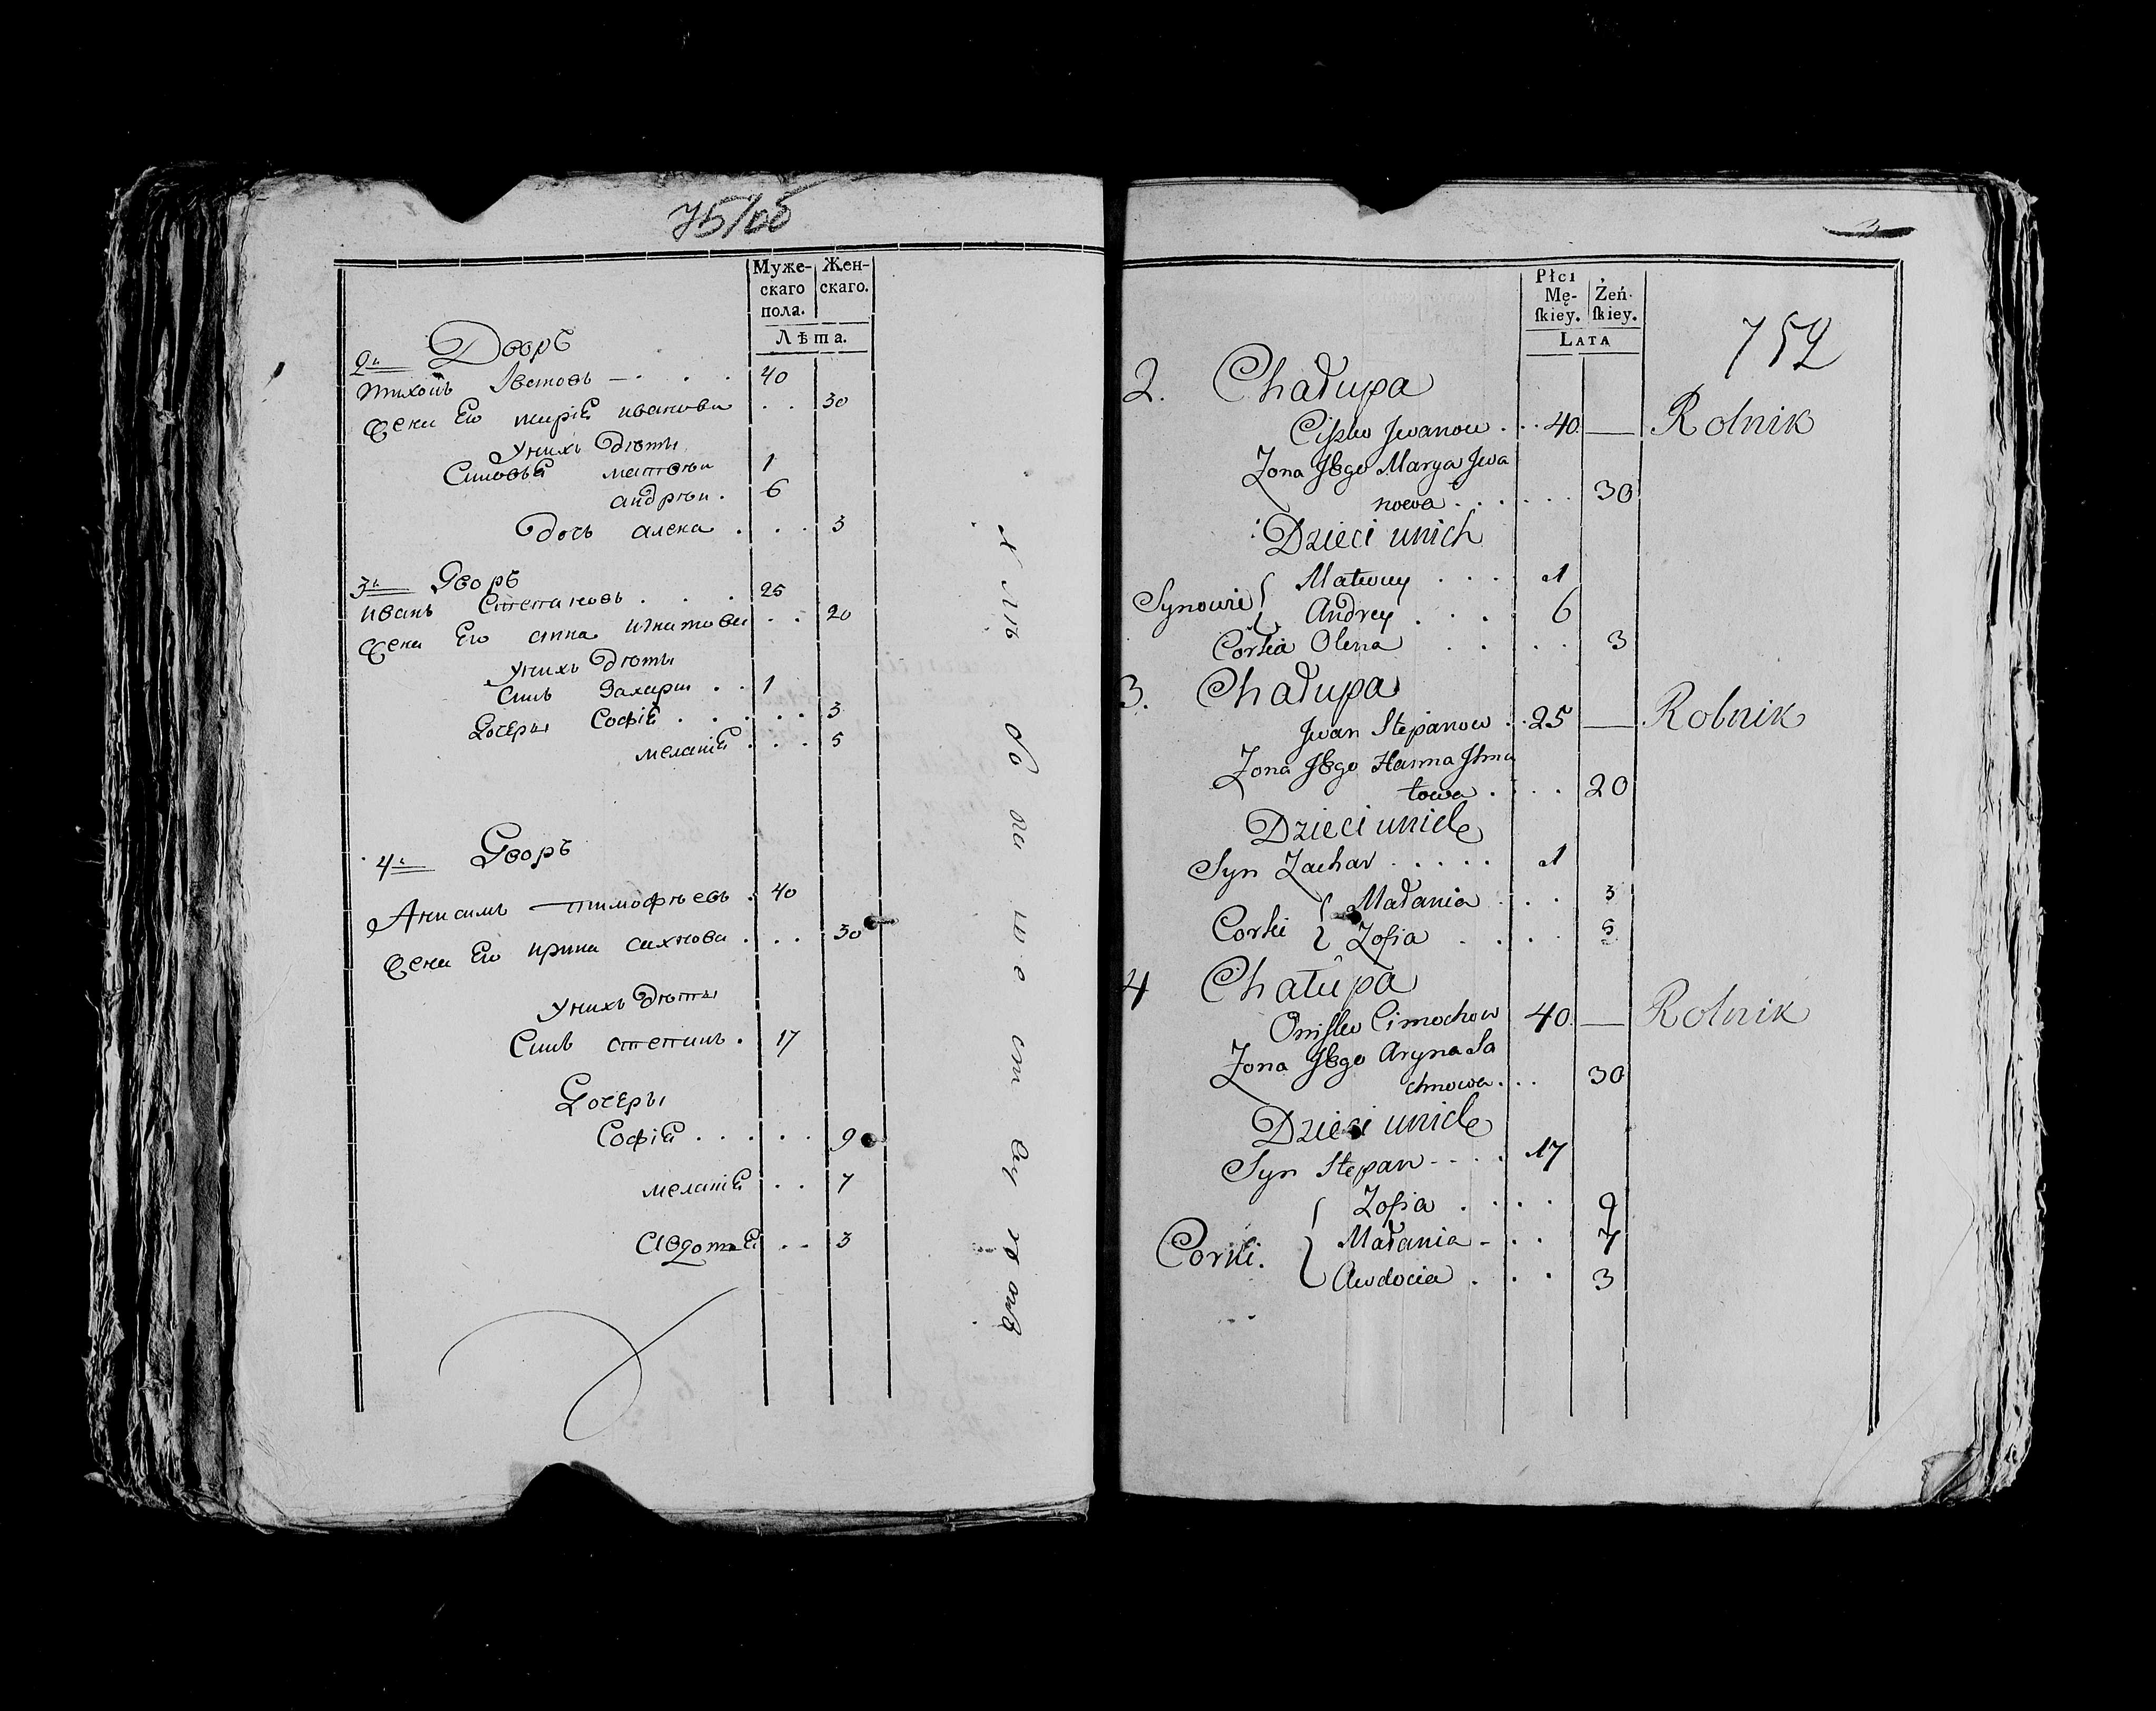 75/об
Муже- Жен-
скаго скаго.
пола.
Лѣта.
2й Дворъ
Тихонъ Ивановъ — . . . 40
Жена Его мариѣ иванова . . 30
Унихъ дѣти
Синовья матвѣи 1
андрѣи . 6
дочь алена . . . 3
3й Дворъ
иванъ Степановъ . . . 25
Жена Его анна игнатова . . 20
Унихъ дѣти
Синъ Захари . . 1
Дочеры Софія . . . . . 3
меланія . . . 5
4й Дворъ
Анисимъ тимофѣевъ . 40
Жена Его ирина сахнова . . . 30
Унихъ дѣти
Синъ степанъ . 17
Дочеры
Софія . . . . . 9
меланія . . 7
Авдотиа . . 3
Płci
Mę- Żeń-
ſkiey. ſkiey.
LATA
752
2. Chałupa
Ciſzko Jwanow . . 40. — Rolnik
Zona Jego Marya Jwa
nowa . . . . . 30
Dzieci unich
Synowie { Matwey . . . 1
Andrey . . . 6
Corka Olena . . . . 3
3. Chałupa
Jwan Stepanow . . 25 — Rolnik
Zona Jego Hanna Jhna
towa . . . 20
Dzieci unich
Syn Zachar . . . . . 1
Corki { Małania . . . 3
Zofia . . . . 5
4 Chałupa
Oniſko Cimochow 40. — Rolnik
Zona Jego Aryna Sa
chnowa . . . 30
Dzieci unich
Syn Stepan - - . . 17
Zofia . . . . 9
Corki. { Małania - . . 7
Awdocia . . . 3